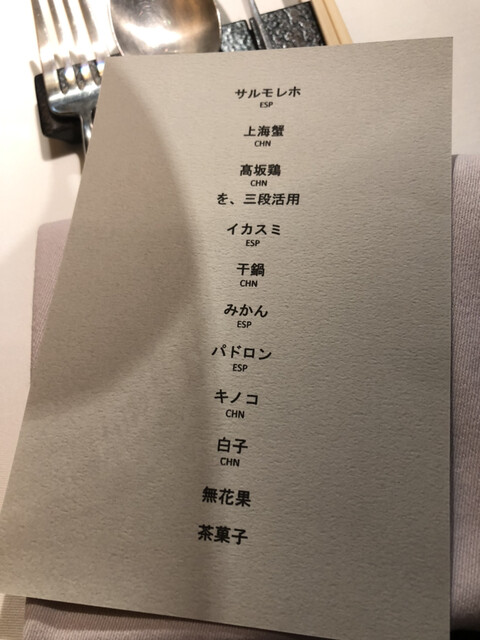 サルモレホ
ESP
上海蟹
CHN
高坂鶏
CHN
を、三段活用
イカスミ
ESP
干鍋
CHN
みかん
ESP
パドロン
ESP
キノコ
CHN
白子
CHN
無花果
茶菓子